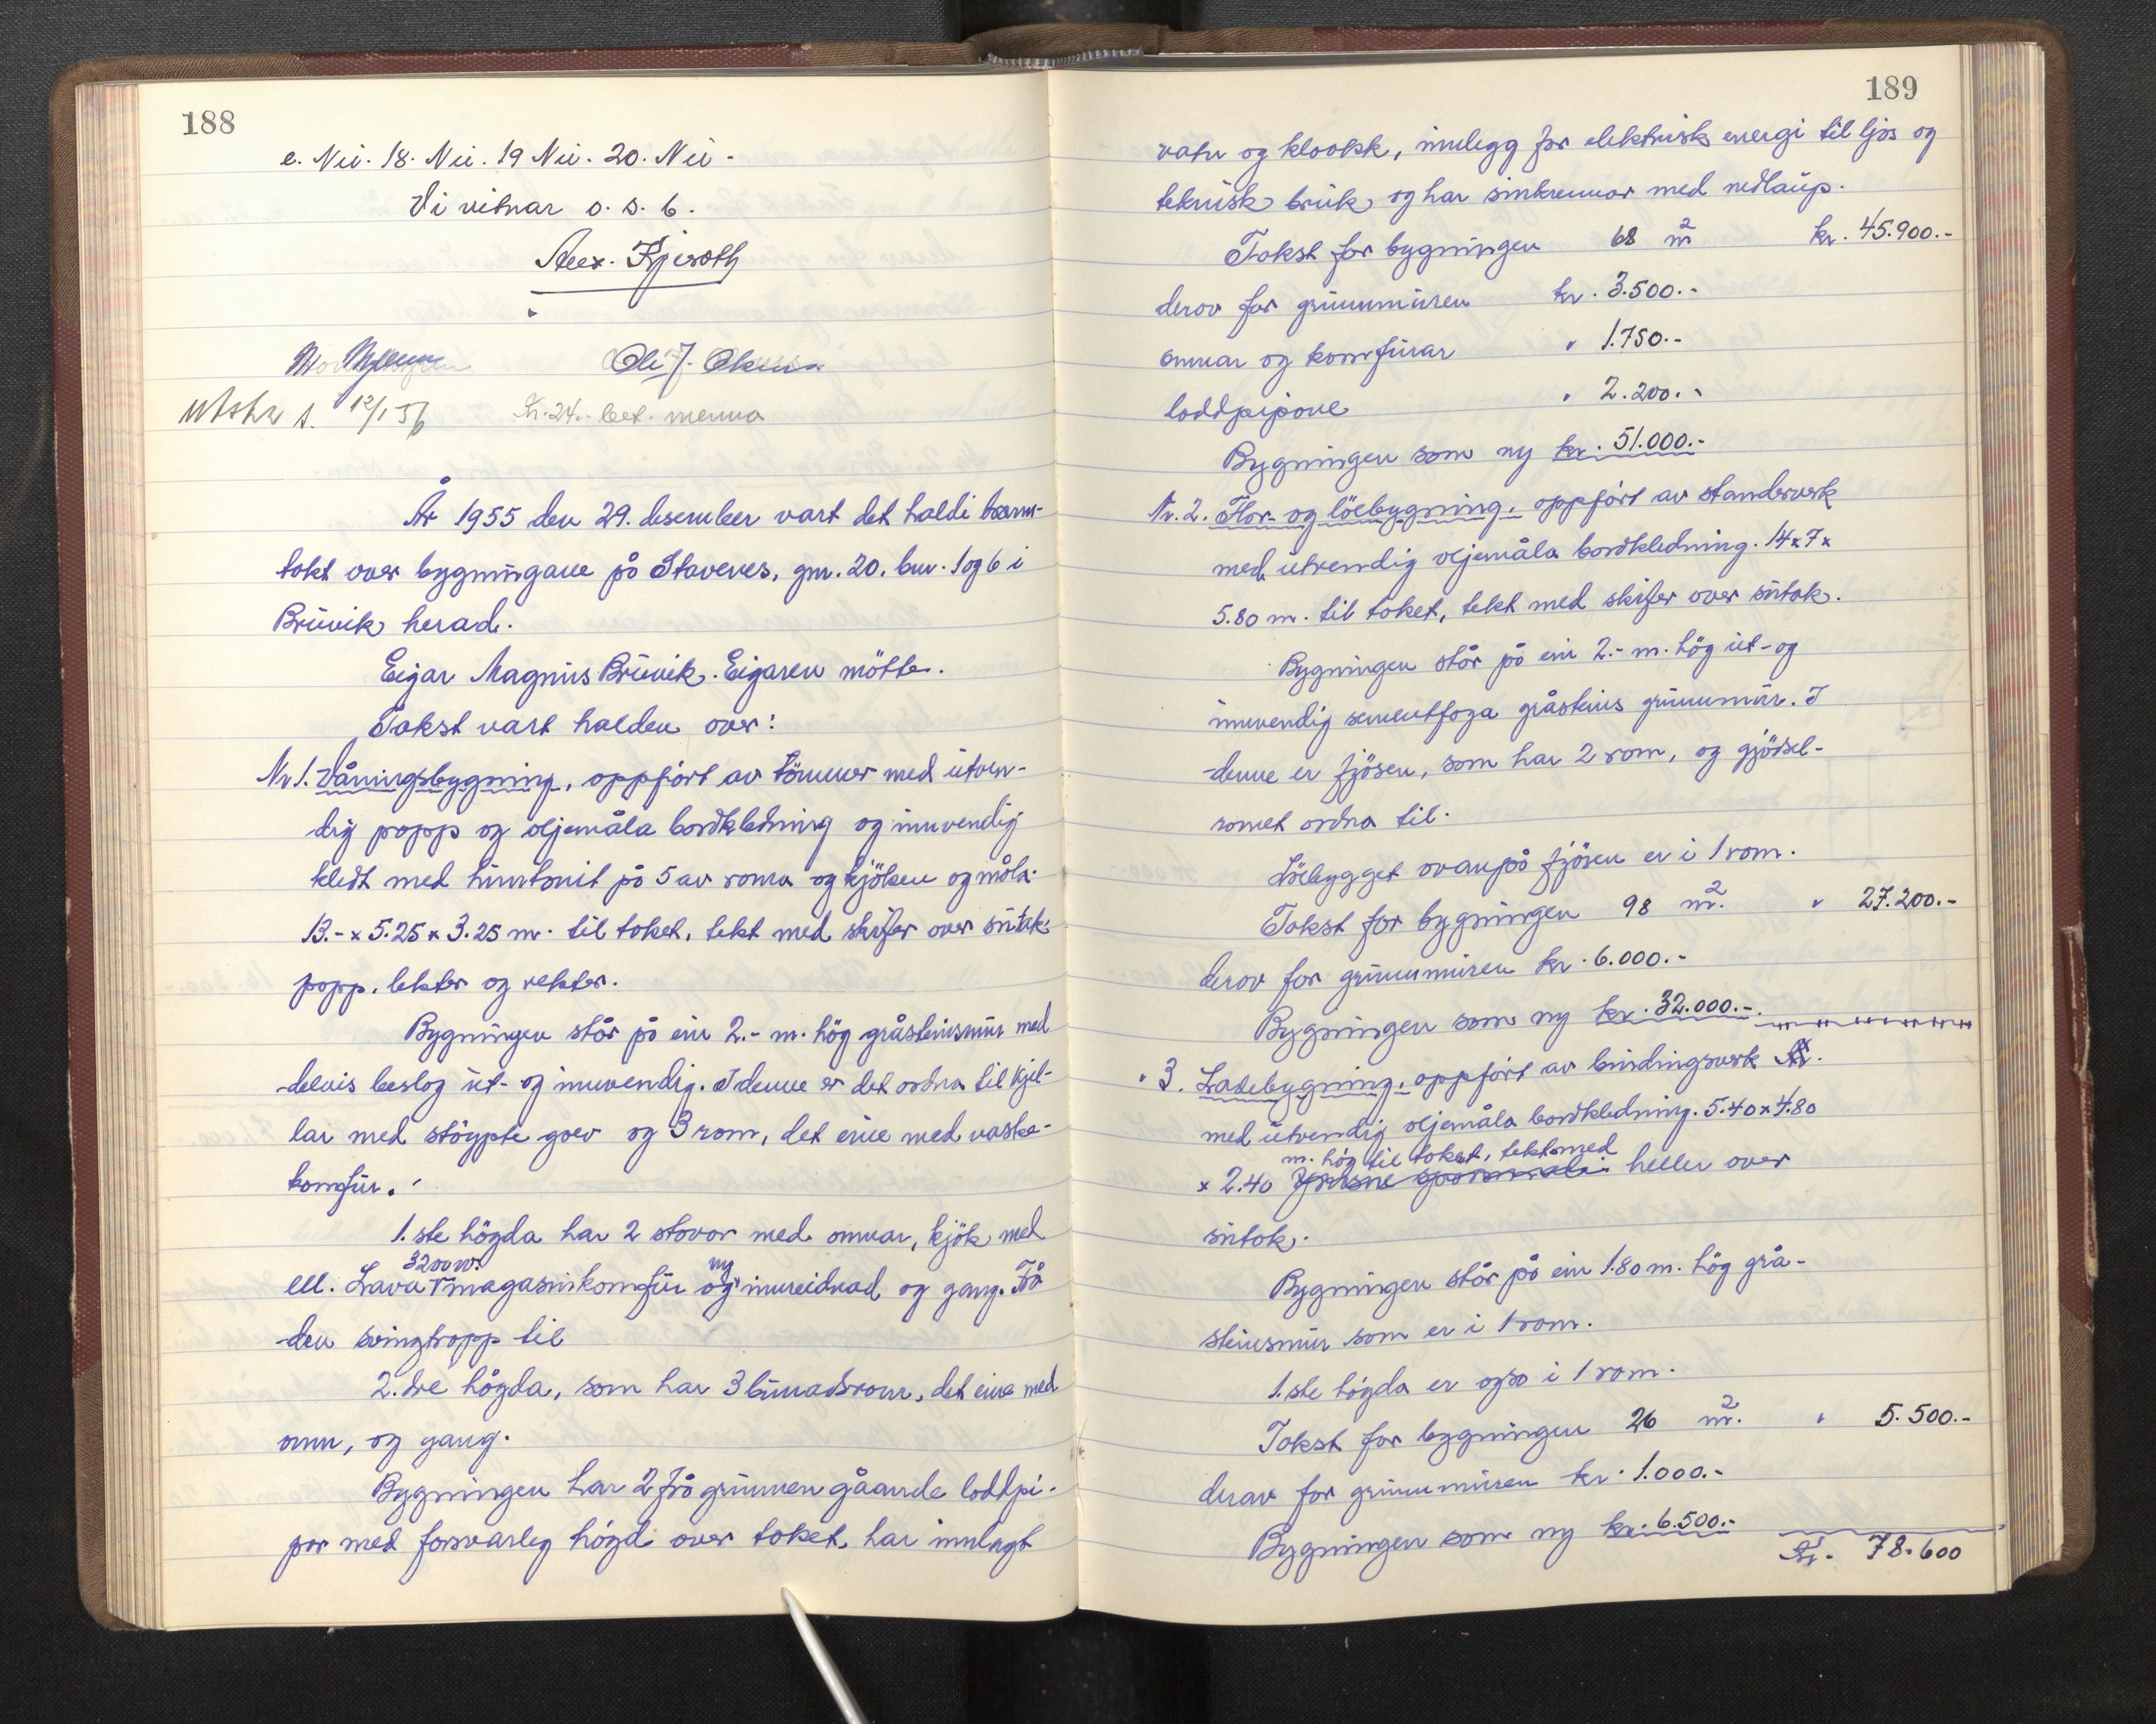 188
e. Nei. 18. Nei. 19 Nei. 20. Nei -
Vi vitnar o. s. b.
Alex. Kjeroth
Ole J.
utskr s. 12/1 56 Kr. 24.- bet. menna
År 1955 den 29. desember vart det haldi brann-
takt over bygningane på Stavenes, gnr. 20. bnr. 1 og 6 i
Bruvik herad.
Eigar Magnus Bruvik. Eigaren mötte.
Takst vart halden over:
Nr 1. Våningsbygning, oppfört av tömmer med utven-
dig papp og oljemåla bordkledning og innvendig
kledt med huntonit på 5 av roma og kjöken og måla.
13.- x 5.25 x 3.25 m. til taket, tekt med skifer over sutak.
papp. lekter og rekter.
Bygningen står på ein 2.- m. hög gråsteinsmur med
delvis beslag ut- og innvendig. I denne er det ordna til kjel-
lar med stöypte golv og 3 rom, det eine med vaske-
komfur.
1.ste högda har 2 stovor med omnar, kjök med
3200 w. ny
ell. Lava magasinkomfur og innreidnad og gang. Frå
den svingtrapp til
2. dre högda, som har 3 bunadsrom, det eine med
omn, og gang.
Bygningen har 2 frå grunnen gåande loddpi-
par med forsvarleg högd over taket, har innlagt
189
vatn og kloakk, innlegg for elektrisk energi til ljos og
teknisk bruk og har sinkrennor med nedlaup.
Takst for bygningen 68 m² kr. 45.900.-
derav for grunnmuren kr. 3.500.-
omnar og komfurar " 1.750.-
loddpipone " 2.200.-
Bygningen som ny kr. 51.000.-
Nr. 2. Flor- og löebygning, oppfört av standerverk
med utvendig oljemåla bordkledning. 14 x 7 x
5.80 m. til taket, tekt med skifer over sutak.
Bygningen står på ein 2.- m. hög ut- og
innvendig sementfoga gråsteins grunnmur. I
denne er fjösen, som har 2 rom, og gjödsel-
romet ordna til.
Löebygget ovanpå fjösen er i 1 rom.
Takst for bygningen 98 m². " 27.200.-
derav for grunnmuren kr. 6.000.-
Bygningen som ny kr. 32.000.-
" 3. Ladebygning, oppfört av bindingsverk
med utvendig oljemåla bordkledning. 5.40 x 4.80
m. hög til taket, tekt med
x 2.40 heller over
sutak.
Bygningen står på ein 1.80 m. hög grå-
steinsmur som er i 1 rom.
1.ste högda er også i 1 rom.
Takst for bygningen 26 m². " 5.500.-
derav for grunnmuren kr. 1.000.-
Bygningen som ny kr. 6.500.-
Kr. 78.600